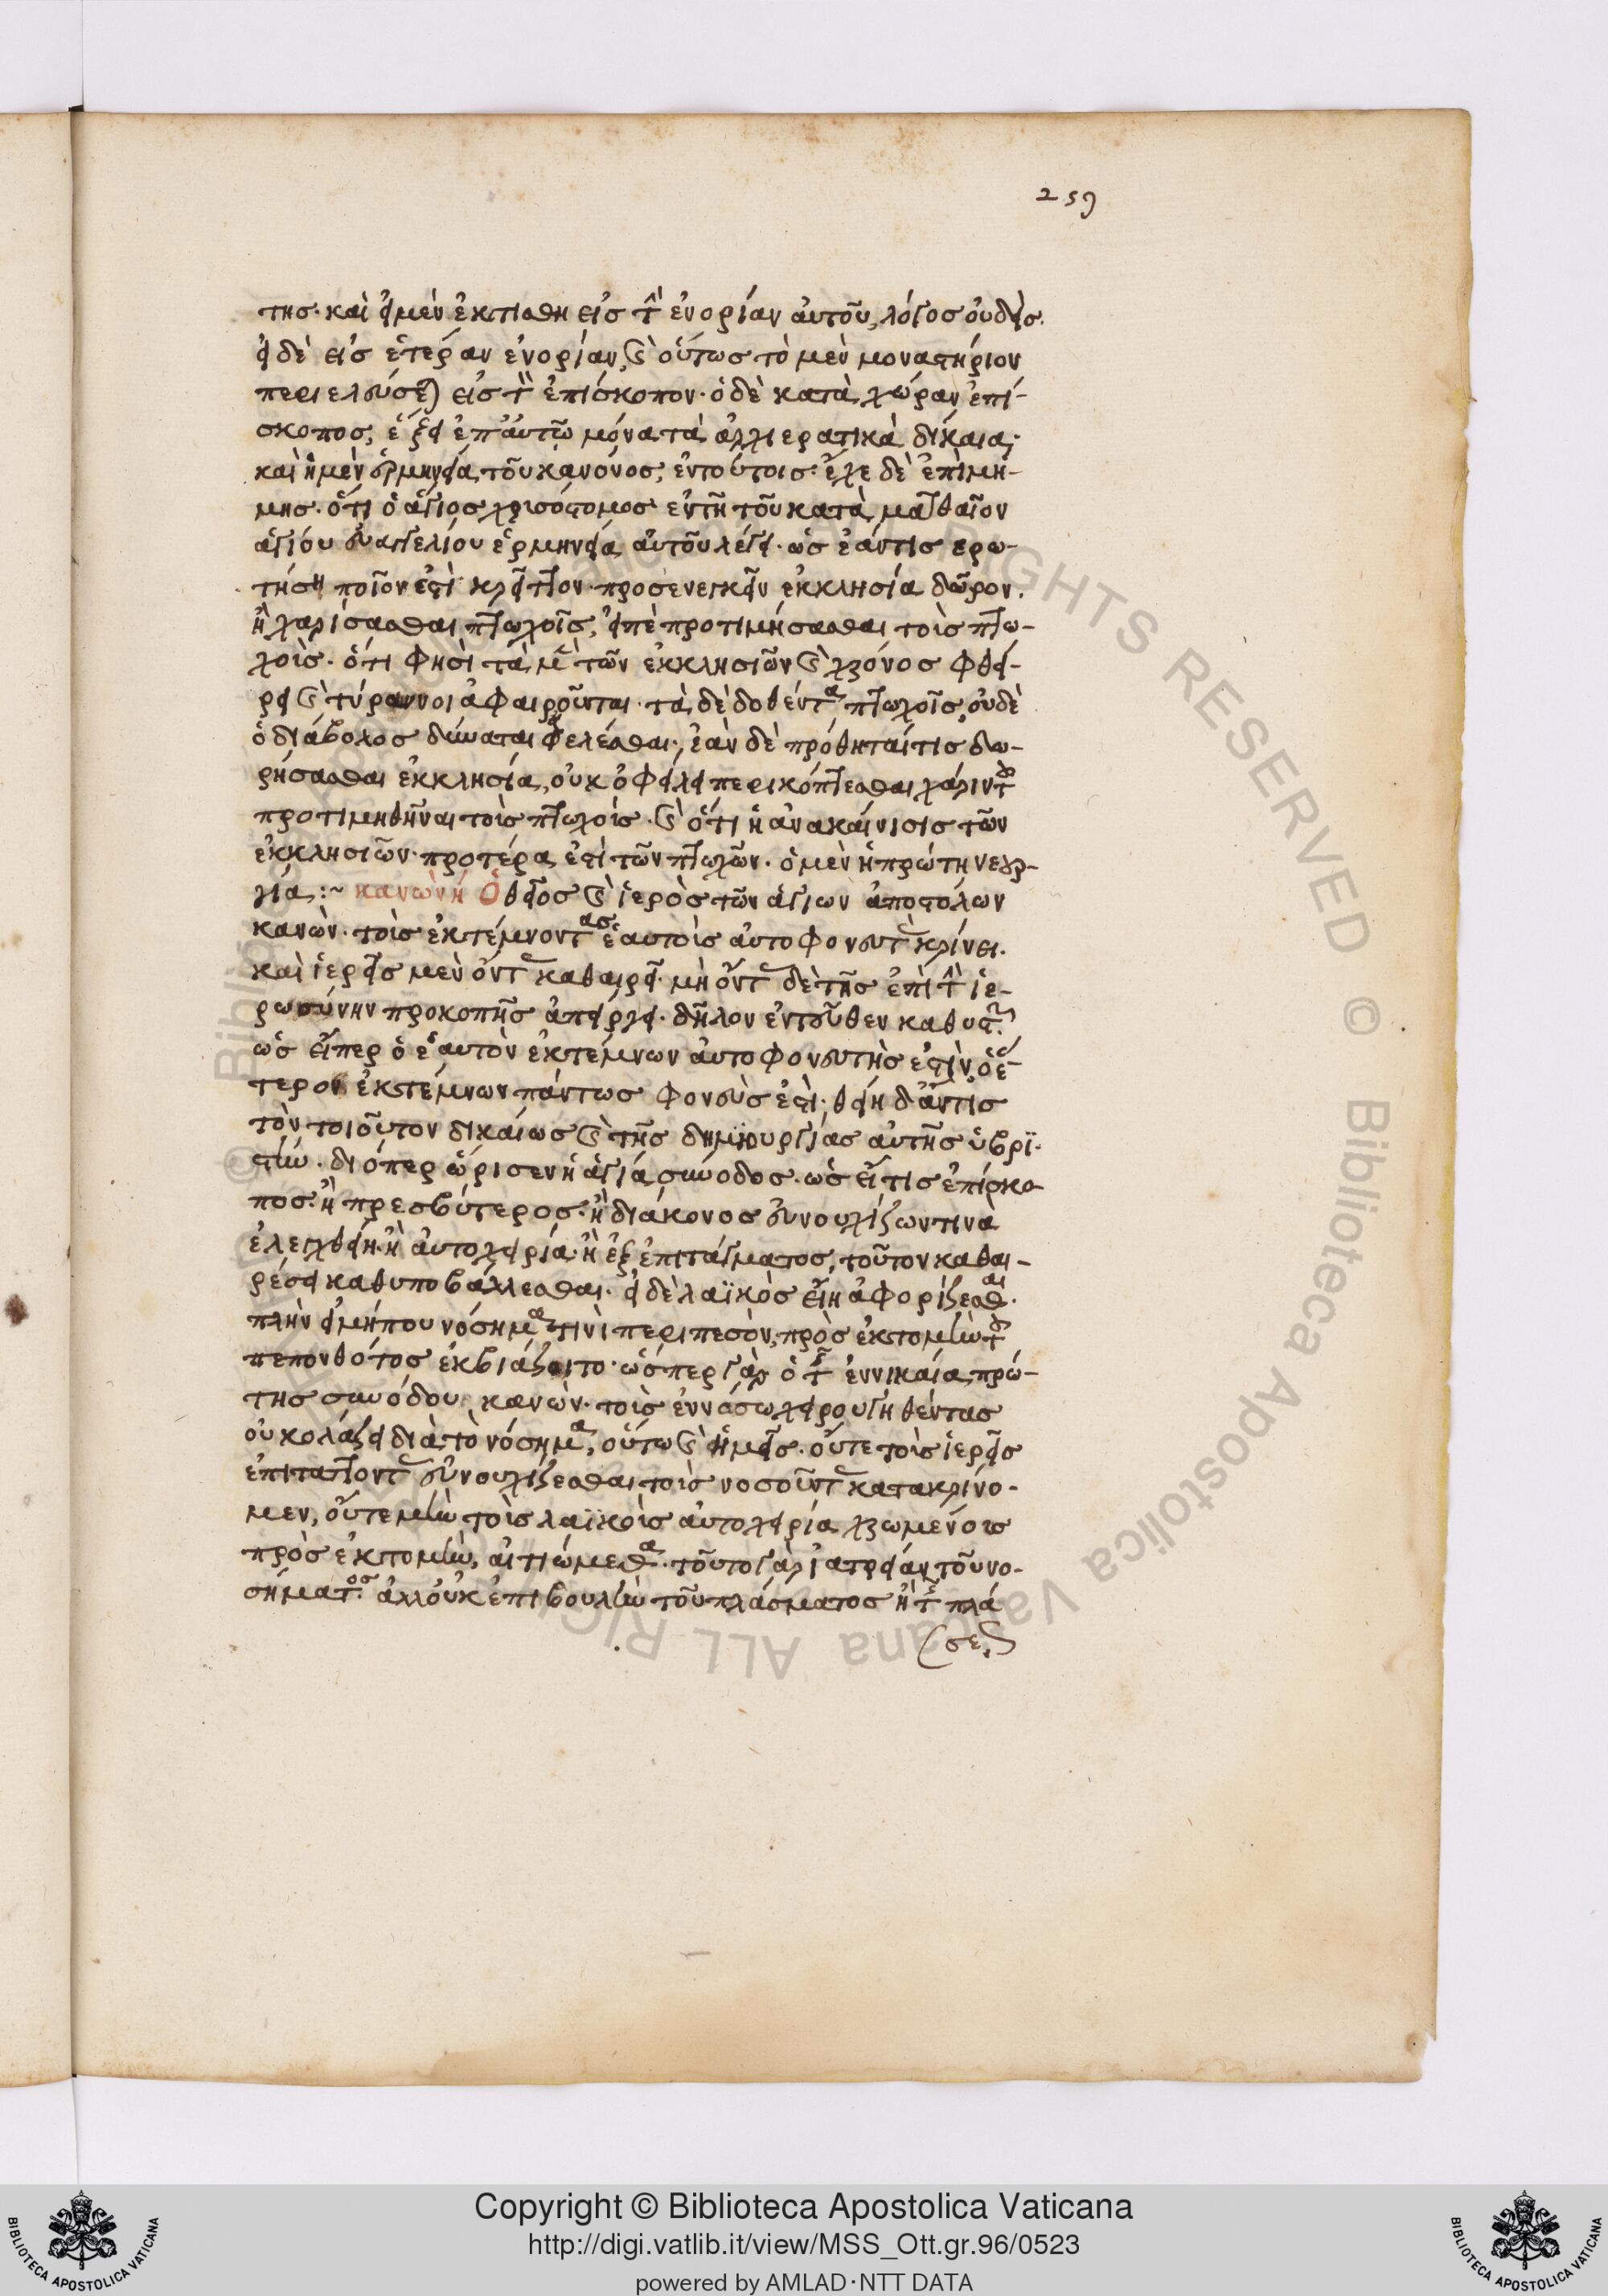 259
της. καὶ εἰ μὲν ἐκτίσθη εἰς τὴν ἐνορίαν αὐτοῦ, λόγος οὐδείς.
εἰ δὲ εἰς ἑτέραν ἐνορίαν, καὶ οὕτως τὸ μὲν μοναστήριον
περιελεύσεται εἰς τὸν ἐπίσκοπον. ὁ δὲ κατὰ χώραν ἐπί-
σκοπος, ἕξει ἐπ' αὐτῶ μόνα τὰ ἀρχιερατικὰ δίκαια.
καὶ ἡ μὲν ἑρμηνεία τοῦ κανόνος, ἐν τούτοις. ἔχε δὲ ἐπὶ μνή-
μης. ὅτι ὁ ἅγιος χρυσόστομος ἐν τῆ τοῦ κατὰ ματθαῖον
ἁγίου εὐαγγελίου ἑρμηνεία αὐτοῦ λέγει. ὡς ἐάν τις ερω-
τήση ποῖον ἐστὶ κρεῖττον. προσενεγκεῖν ἐκκλησία δῶρον.
ἢ χαρίσασθαι πτωχοῖς, εἰπὲ προτιμήσασθαι τοὺς πτω-
χούς. ὅτι φησὶ τὰ μὲν τῶν ἐκκλησιῶν καὶ χρόνος φθεί-
ρει καὶ τύραννοι ἀφαιροῦνται. τὰ δὲ δοθέντα πτωχοῖς, οὐδὲ
ὁ διάβολος δύναται ἀφελέσθαι. ἐὰν δὲ πρόθηταί τις δω-
ρήσασθαι ἐκκλησία, οὐκ ὀφείλει περικόπτεσθαι χάριν τοῦ
προτιμηθῆναι τοὺς πτωχούς. καὶ ὅτι ἡ ἀνακαίνισις τῶν
ἐκκλησιῶν προτέρα ἐστὶ τῶν πτωχῶν. ὁ μὲν ἡ πρώτη νεαρ-
 :~ κανὼν η Ὁ θεῖος καὶ ἱερὸς τῶν ἁγίων ἀποστόλων
κανὼν. τοὺς ἐκτέμνοντας ἑαυτοὺς αὐτοφονευτὰς κρίνει.
καὶ ἱερεῖς μὲν ὄντας καθαιρεῖ. μὴ ὄντας δὲ τῆς ἐπὶ τὴν ἱε-
ρωσύνην προκοπῆς ἀπείργει. δῆλον ἐντεῦθεν καθίστησιν
ὡς εἴπερ ὁ ἑαυτὸν ἐκτέμνων αὐτοφονευτὴς ἐστὶν, ὁ ἕ-
τερον ἐκτέμνων πάντως φονεὺς ἐστί. θείη δ' ἄν τις
τὸν τοιοῦτον δικαίως καὶ τῆς δημιουργίας αὐτῆς ὑβρι-
στήν. διόπερ ὥρισεν ἡ ἁγία σύνοδος. ὡς εἴ τις ἐπίσκο-
πος. ἢ πρεσβύτερος. ἢ διάκονος εὐνουχίζων τινὰ
ἐλεγχθείη. ἢ αὐτοχειρία. ἢ ἐξ ἐπιτάγματος, τοῦτον καθαι-
ρέσει καθυποβάλλεσθαι. εἰ δὲ λαϊκὸς εἴη ἀφορίζεσθαι.
πλὴν εἰ μήπου νόσημα τινὶ περιπεσὸν, πρὸς ἐκτομὴν τοῦ
πεπονθότος ἐκβιάζοιτο. ὥσπερ γὰρ ὁ τῆς ἐν νικαία πρώ-
της συνόδου κανὼν. τοὺς ἐν νόσω χειρουργηθέντας
οὐ κολάζει διὰ τὸ νόσημα, οὕτω καὶ ἡμεῖς. οὔτε τοὺς ἱερεῖς
ἐπιτάττοντας εὐνουχίζεσθαι τοὺς νοσοῦντας κατακρίνο-
μεν, οὔτε μὴν τοὺς λαϊκοὺς αὐτοχειρία χρωμένους
πρὸς ἐκτομὴν, αἰτιώμεθα. τοῦτο γὰρ ἰατρείαν τοῦ νο-
σήματος. ἀλλ' οὐκ ἐπιβουλὴν τοῦ πλάσματος ἢ τῆς πλά
(σε,
Copyright © Biblioteca Apostolica Vaticana
http://digi.vatlib.it/view/MSS_Ott.gr.96/0523
powered by AMLAD·NTT DATA